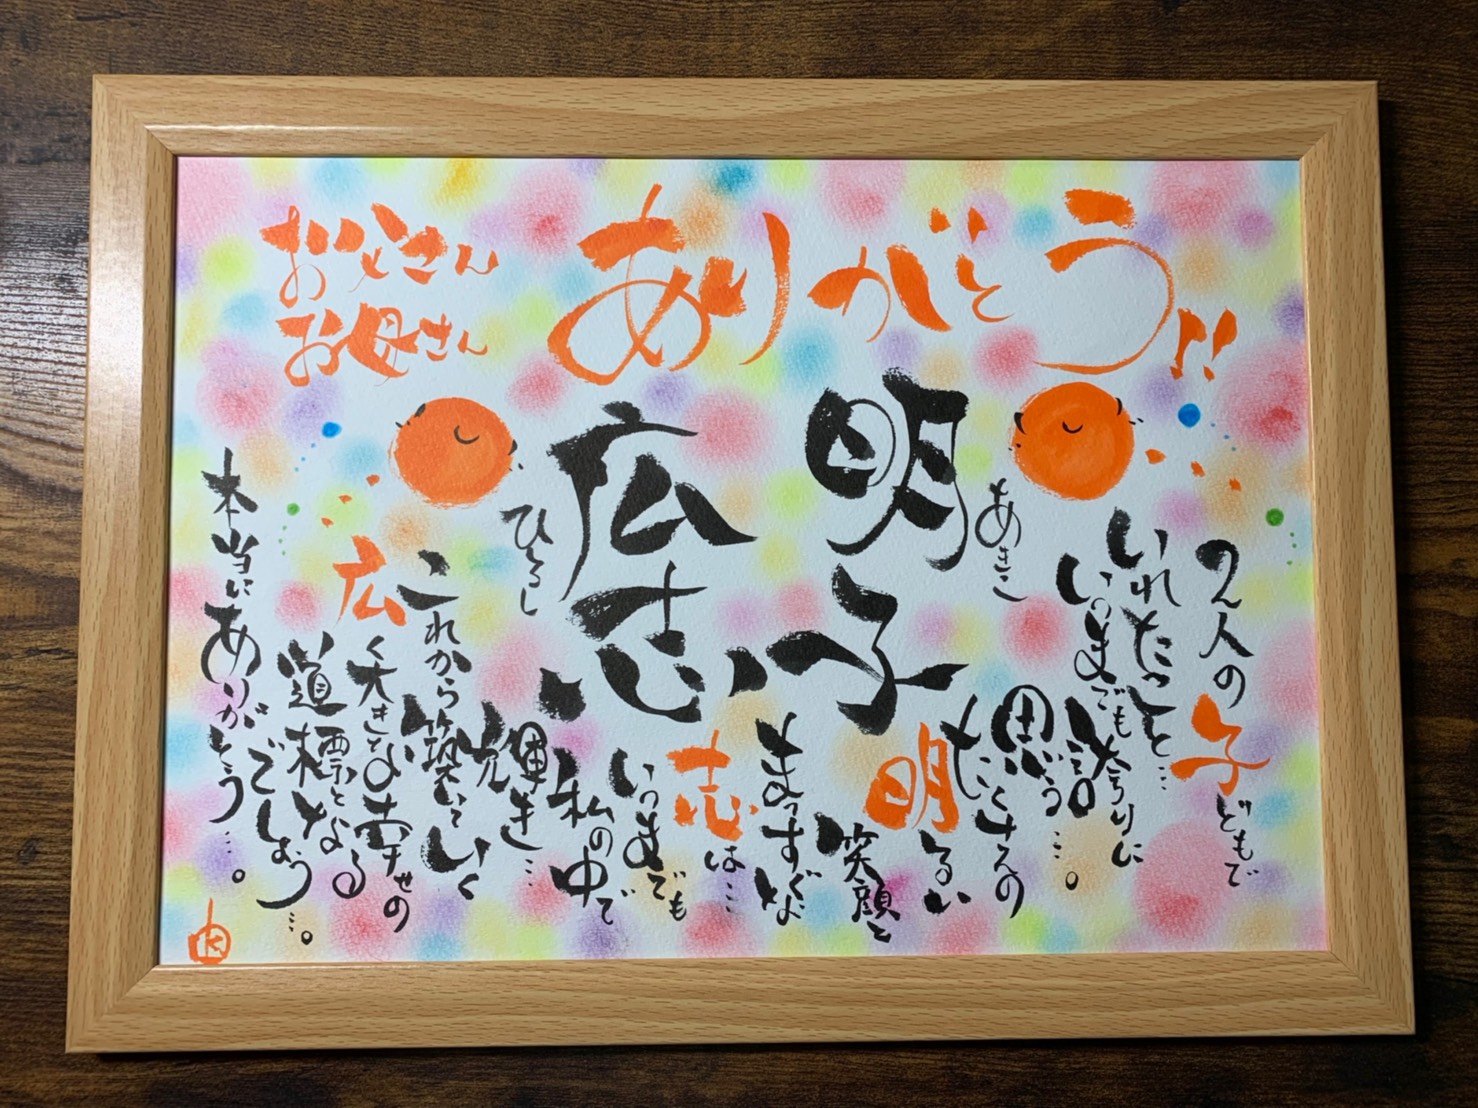 お父さん
お母さん
ありがとう!!
明子
あきこ
広志
ひろし
2人の子どもで
いれたこと…
いつまでも誇りに
思う…。
たくさんの
明るい
笑顔と
まっすぐな
志は…
いつまでも
私の中で
輝き…
これから築いていく
広く大きな幸せの
道標となる
でしょう…。
本当にありがとう…。